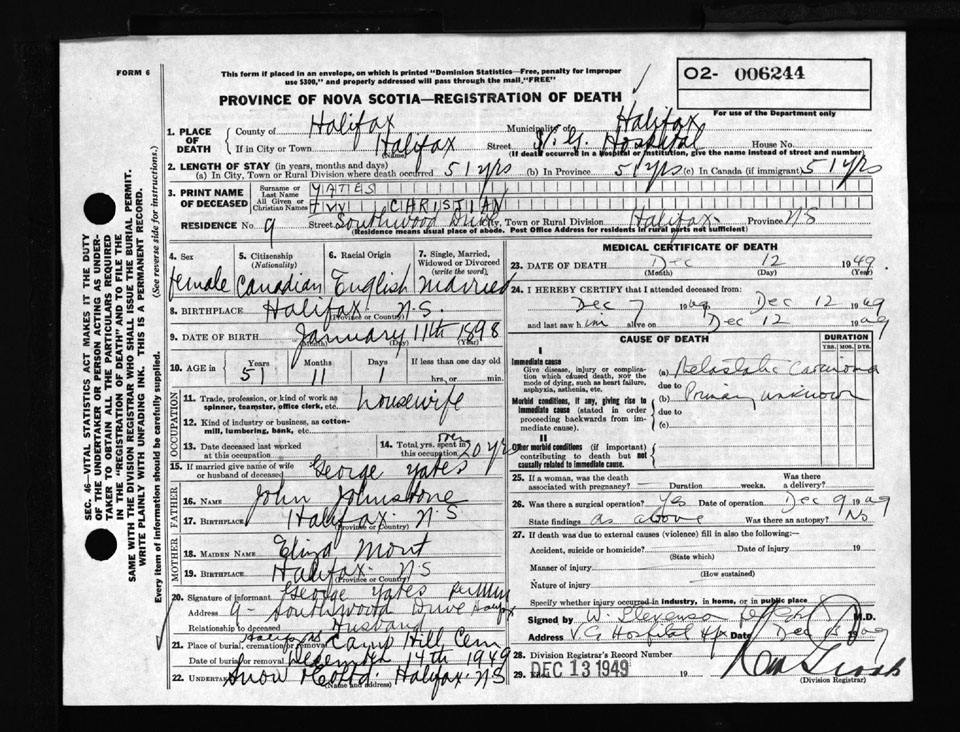 FORM 6
This form if placed in an envelope, on which is printed "Dominion Statistics—Free, penalty for improper
use $300," and properly addressed will pass through the mail, "FREE"
O2- 006244
For use of the Department only
PROVINCE OF NOVA SCOTIA—REGISTRATION OF DEATH
1. PLACE OF DEATH
County of Halifax Municipality of Halifax
If in City or Town Halifax (Name) Street V. G. Hospital House No.
(If death occurred in a hospital or institution, give the name instead of street and number)
2. LENGTH OF STAY (in years, months and days)
(a) In City, Town or Rural Division where death occurred 51 yrs (b) In Province 51 yrs (c) In Canada (if immigrant) 51 yrs
3. PRINT NAME OF DECEASED
Surname or Last Name YATES
All Given or Christian Names IVY CHRISTIAN
RESIDENCE No. 9 Street Southwood Drive City, Town or Rural Division Halifax Province N S
(Residence means usual place of abode. Post Office Address for residents in rural parts not sufficient)
4. Sex female
5. Citizenship (Nationality) Canadian
6. Racial Origin English
7. Single, Married, Widowed or Divorced (write the word) Married
8. BIRTHPLACE Halifax N.S. (Province or Country)
9. DATE OF BIRTH January 11th 1898 (Month) (Day) (Year)
10. AGE in Years 51 Months 11 Days 1 If less than one day old
hrs. or min.
OCCUPATION
11. Trade, profession, or kind of work as spinner, teamster, office clerk, etc. housewife
12. Kind of industry or business, as cotton-mill, lumbering, bank, etc.
13. Date deceased last worked at this occupation
14. Total yrs. spent in this occupation over 20 yrs
15. If married give name of wife or husband of deceased George Yates
FATHER
16. NAME John Johnstone
17. BIRTHPLACE Halifax N S (Province or Country)
MOTHER
18. MAIDEN NAME Eliza Mont
19. BIRTHPLACE Halifax N S (Province or Country)
20. Signature of informant George Yates
Address 9 - Southwood Drive Halifax
Relationship to deceased Husband
21. Place of burial, cremation or removal Halifax NS Camp Hill Cem
Date of burial or removal December 14th 1949
22. UNDERTAKER Snow & Co Ltd. Halifax N S
(Name and address)
MEDICAL CERTIFICATE OF DEATH
23. DATE OF DEATH Dec 12 1949
(Month) (Day) (Year)
24. I HEREBY CERTIFY that I attended deceased from:
Dec 7 1949 Dec 12 1949
and last saw him alive on Dec 12 1949
CAUSE OF DEATH
DURATION
YRS. MOS. DYS.
I
Immediate cause
Give disease, injury or complication which caused death, not the mode of dying, such as heart failure, asphyxia, asthenia, etc.
(a) Metastatic Carcinoma
due to
Morbid conditions, if any, giving rise to immediate cause (stated in order proceeding backwards from immediate cause).
(b) Primary unknown
due to
(c)
II
Other morbid conditions (if important) contributing to death but not causally related to immediate cause.
25. If a woman, was the death associated with pregnancy? Duration weeks. Was there a delivery?
26. Was there a surgical operation? Yes Date of operation Dec 9 1949
State findings as above Was there an autopsy? No
27. If death was due to external causes (violence) fill in also the following:—
Accident, suicide or homicide? Date of injury 19
(State which)
Manner of injury
(How sustained)
Nature of injury
Specify whether injury occurred in industry, in home, or in public place
Signed by W. Stevenson M.D.
Address V G Hospital Hfx Date Dec 1949
28. Division Registrar's Record Number
29. Filed DEC 13 1949 19
(Division Registrar)
SEC. 46—VITAL STATISTICS ACT MAKES IT THE DUTY
OF THE UNDERTAKER OR PERSON ACTING AS UNDER-
TAKER TO OBTAIN ALL THE PARTICULARS REQUIRED
IN THE "REGISTRATION OF DEATH" AND TO FILE THE
SAME WITH THE DIVISION REGISTRAR WHO SHALL ISSUE THE BURIAL PERMIT.
WRITE PLAINLY WITH UNFADING INK. THIS IS A PERMANENT RECORD.
Every item of information should be carefully supplied. (See reverse side for instructions.)